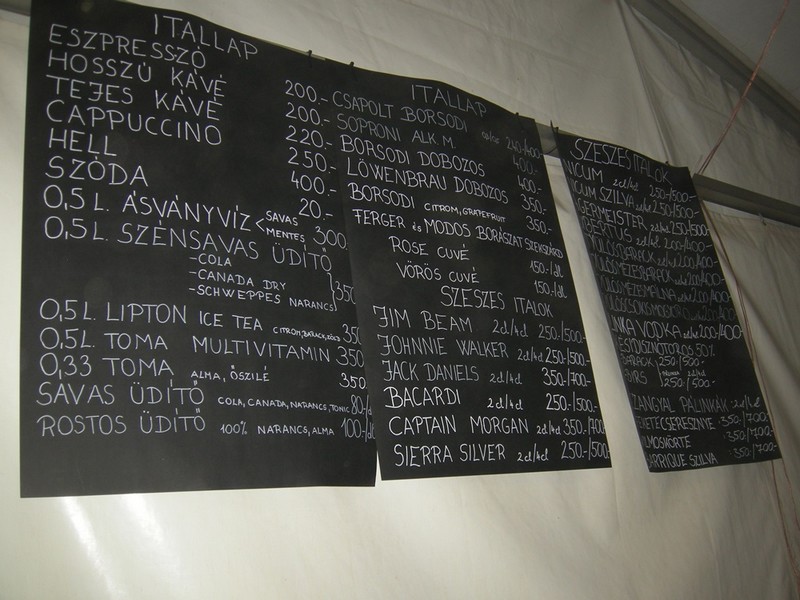 ITALLAP
ESZPRESSZÓ 200.-
HOSSZÚ KÁVÉ 200.-
TEJES KÁVÉ 220.-
CAPPUCCINO 250.-
HELL 400.-
SZÓDA 20.-
0,5 L. ÁSVÁNYVÍZ < SAVAS MENTES 300
0,5 L. SZÉNSAVAS ÜDÍTŐ
-COLA
-CANADA DRY 350
-SCHWEPPES NARANCS
0,5 L. LIPTON ICE TEA CITROM, BARACK, ZÖLD 350
0,5 L. TOMA MULTIVITAMIN 350
0,33 TOMA ALMA, ŐSZILÉ 350
SAVAS ÜDÍTŐ COLA, CANADA, NARANCS, TONIC 80.-/dl
ROSTOS ÜDÍTŐ 100% NARANCS, ALMA 100-/dl
ITALLAP
CSAPOLT BORSODI
SOPRONI ALK. M. 400.-
BORSODI DOBOZOS 400.-
LÖWENBRAU DOBOZOS 350.-
BORSODI CITROM, GRAPEFRUIT 350.-
FERGER és MODOS BORÁSZAT SZEKSZÁRD
ROSE CUVÉ 150.-/dl
VÖRÖS CUVÉ 150.-/dl
SZESZES ITALOK
JIM BEAM 2cl/4cl 250.-/500.-
JOHNNIE WALKER 2cl/4cl 250.-/500.-
JACK DANIELS 2cl/4cl 350.-/700.-
BACARDI 2cl/4cl 250.-/500.-
CAPTAIN MORGAN 2cl/4cl 350.-/700
SIERRA SILVER 2cl/4cl 250.-/500
SZESZES ITALOK
ICUM 2cl/4cl 250/500.-
CUM SZILVA 250/500.-
GERMEISTER 250/500.-
200/400.-
NKA VODKA 200/400.-
BARACK 250/500.-
250/500.-
ZANGYAL PÁLINKÁK 2cl/4cl
ETECSERESZNYE 350.-/700.-
LMOSKÖRTE 350.-/700.-
ARRIQUE SZILVA 350.-/700.-